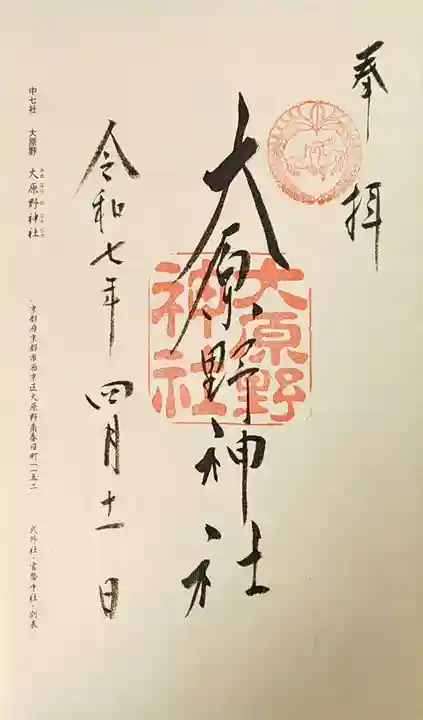 奉拝
大原野神社
大原野神社
令和七年 四月十一日
中七社 大原野 大原野神社
おおはらの じんじゃ
京都府京都市西京区大原野南春日町一一五二
式外社・官幣中社・別表